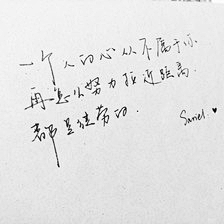 一个人的心从不属于你
再怎么努力拉近距离
都是徒劳的.
Saniel.♥